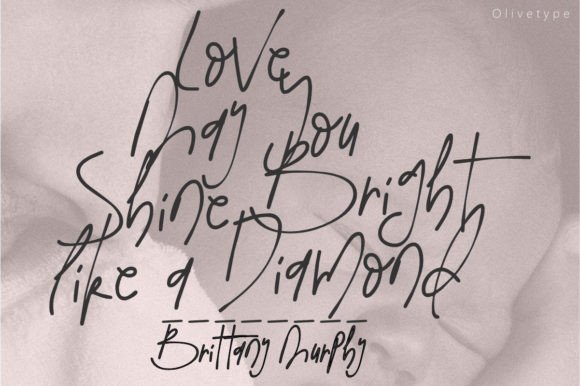 Olivetype
Love,
May You
Shine Bright
like a Diamond
Brittany Murphy